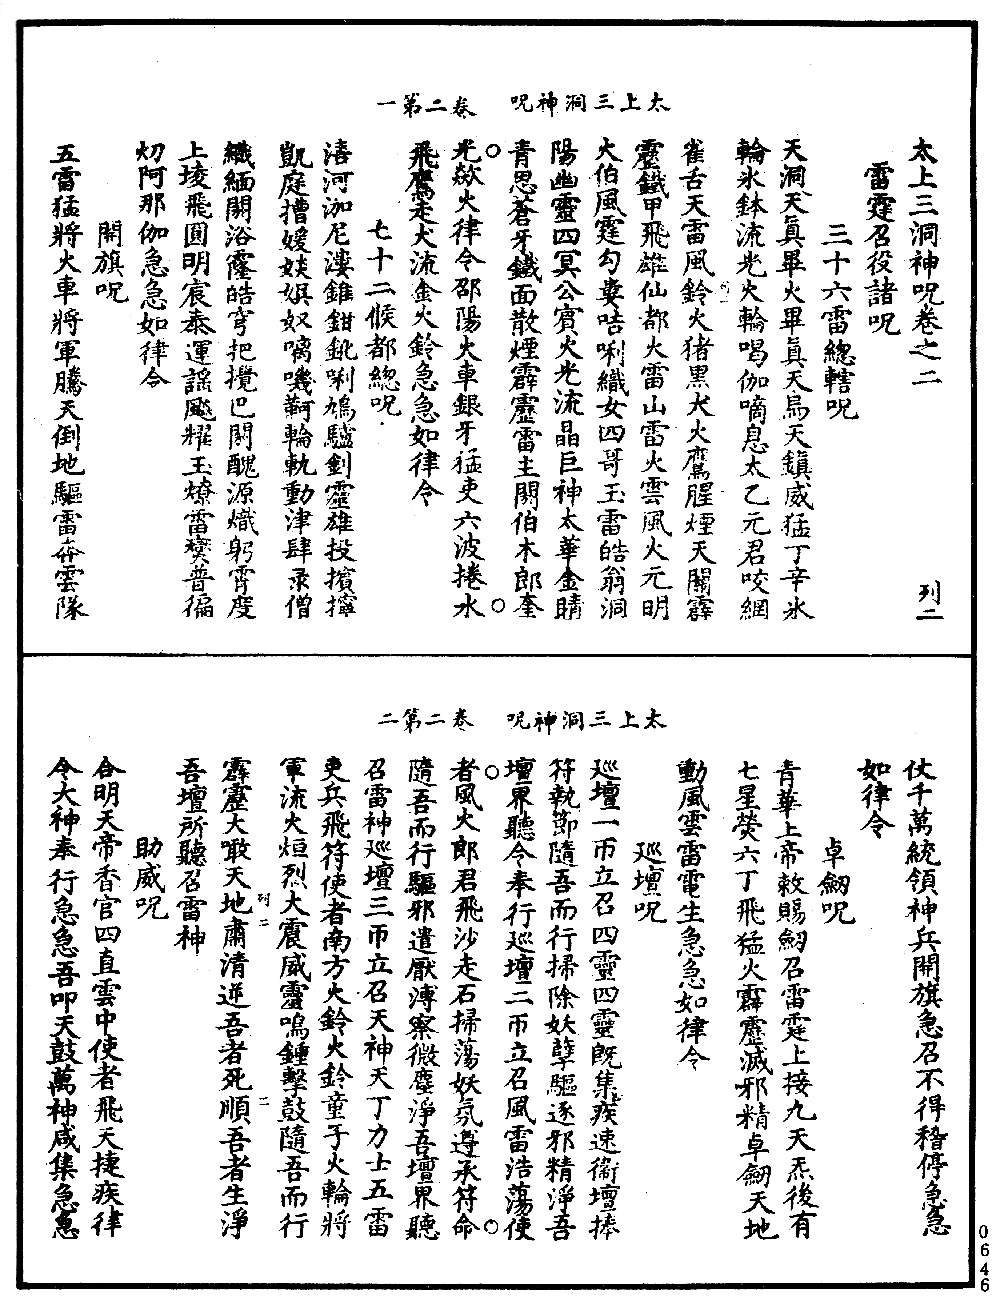 太上三洞神呪　卷二第一
太上三洞神呪卷之二
列二
雷霆召役諸呪
三十六雷總轄呪
天洞天眞畢火畢眞天烏天鎮威猛丁辛氷
輪氷鉢流光火輪喝伽嘀息太乙元君咬網
雀舌天雷風鈴火猪黒犬火鷹腥煙天關霹
靂鐵甲飛雄仙都火雷山雷火雲風火元明
火伯風霆勾婁咭唎織女四哥玉雷皓翁洞
陽幽靈四冥公賓火光流晶巨神太華金睛
青思蒼牙鐵面散煙霹靂雷主關伯木郎奎
光歘火律令邵陽火車銀牙猛吏六波捲水
飛鷹走犬流金火鈴急急如律令
七十二候都總呪
濤河泇尼漊錐鉗銚唎鳩驢釗靈雄投擯擰
凱庭摺媛婒娯奴嚆嘰軻輪軌動津肆录僧
織緬閼浴霳皓穹把攪巴閼醜源熾躬霄度
上堎飛圓明宸泰運謡颷耀玉燎雷奱普徧
灱阿那伽急急如律令
開旗呪
五雷猛將火車將軍騰天倒地驅雷奔雲隊
太上三洞神呪　卷二第二
仗千萬統領神兵開旗急召不得稽停急急
如律令
卓劒呪
青華上帝敕賜劒召雷霆上接九天炁後有
七星熒六丁飛猛火霹靂滅邪精卓劒天地
動風雲雷電生急急如律令
巡壇呪
巡壇一帀立召四靈四靈旣集疾速衞壇捧
符執節隨吾而行掃除妖孽驅逐邪精淨吾
壇界聽令奉行巡壇二帀立召風雷浩蕩使
者風火郎君飛沙走石掃蕩妖氛遵承符命
隨吾而行驅邪遣厭溥察微塵淨吾壇界聽
召雷神巡壇三帀立召天神天丁力士五雷
吏兵飛符使者南方火鈴火鈴童子火輪將
軍流火烜烈大震威靈鳴鍾擊鼓隨吾而行
霹靂大噉天地肅清逆吾者死順吾者生淨
列二
二
吾壇所聽召雷神
助威呪
合明天帝香官四直雲中使者飛天捷疾律
令大神奉行急急吾叩天鼓萬神咸集急急
0646